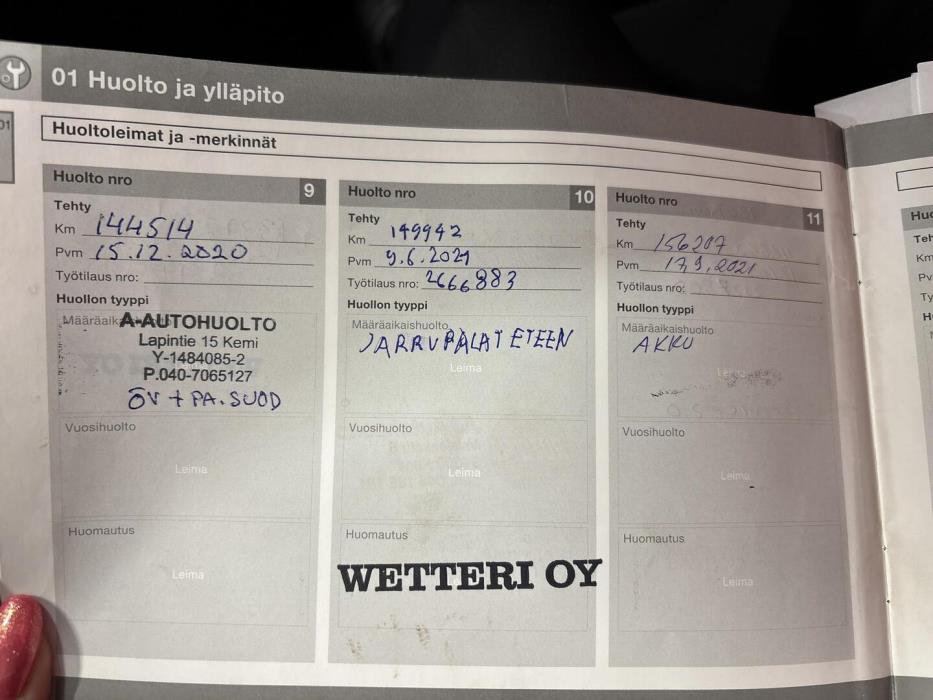 01 Huolto ja ylläpito
01
Huoltoleimat ja -merkinnät
Huolto nro 9
Tehty
Km 144514
Pvm 15.12.2020
Työtilaus nro:
Huollon tyyppi
A-AUTOHUOLTO
Lapintie 15 Kemi
Y-1484085-2
P.040-7065127
ÖV + PA.SUOD
Vuosihuolto
Leima
Huomautus
Leima
Huolto nro 10
Tehty
Km 149942
Pvm 9.6.2021
Työtilaus nro: 2666883
Huollon tyyppi
Määräaikaishuolto
JARRUPALAT ETEEN
Leima
Vuosihuolto
Leima
Huomautus
WETTERI OY
Huolto nro 11
Tehty
Km 156207
Pvm 17.9.2021
Työtilaus nro:
Huollon tyyppi
Määräaikaishuolto
AKKU
Leima
Vuosihuolto
Leima
Huomautus
Leima